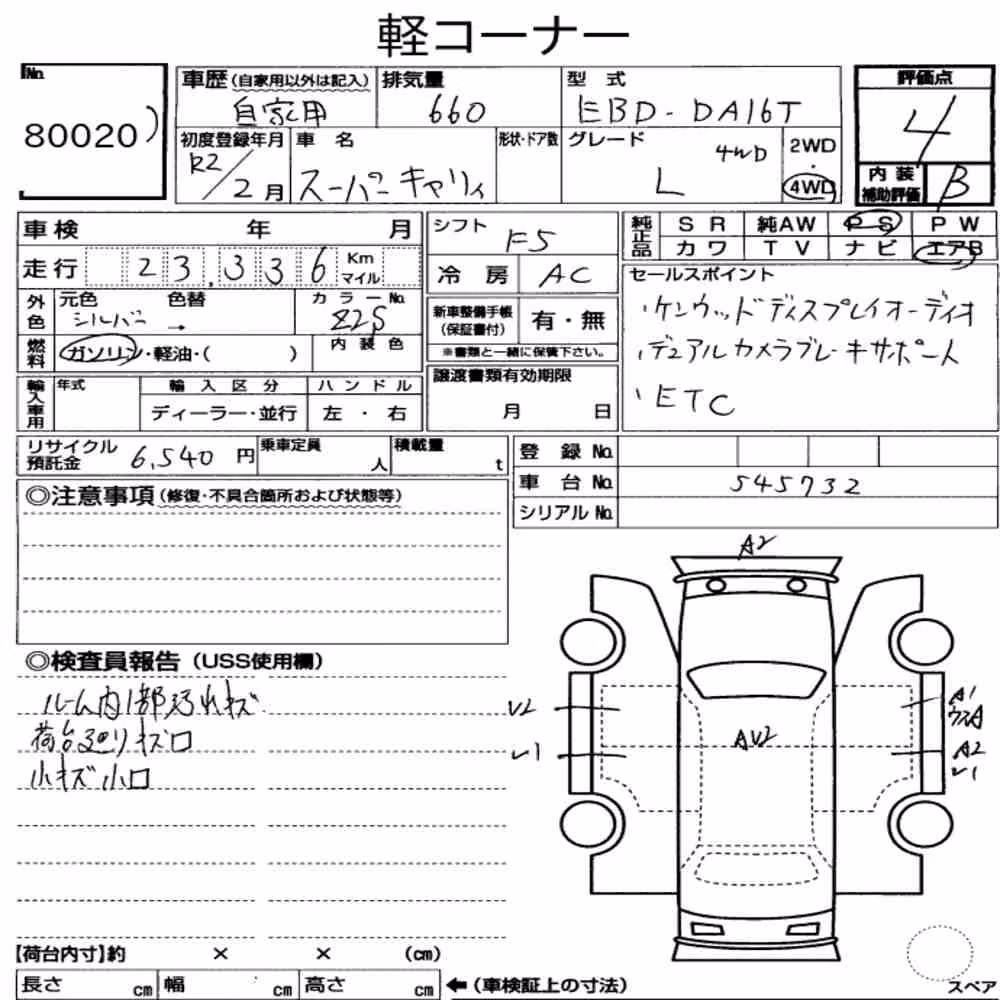 軽コーナー
No.
80020
車歴(自家用以外は記入)
自家用
排気量
660
型式
EBD-DA16T
評価点
4
初度登録年月
R2/2月
車名
スーパーキャリィ
形状・ドア数
グレード
4WD
L
2WD
・
4WD
内装
補助評価
B
車検 年 月
走行 23,336 Km マイル
外色
元色 色替
シルバー →
カラーNo.
Z2S
燃料
ガソリン・軽油・( )
内装色
輸入車用
年式
輸入区分
ディーラー・並行
ハンドル
左・右
シフト
F5
冷房
AC
新車整備手帳
(保証書付)
有・無
※書類と一緒に保管下さい。
譲渡書類有効期限
月 日
純正品
SR 純AW PS PW
カワ TV ナビ エアB
セールスポイント
・ケンウッドディスプレイオーディオ
・デュアルカメラブレーキサポート
・ETC
リサイクル
預託金
6,540円
乗車定員
人
積載量
t
登録No.
車台No.
545732
シリアルNo.
◎注意事項(修復・不具合箇所および状態等)
◎検査員報告(USS使用欄)
ルーム内1部汚れキズ
荷台廻りキズロ
小キズ小ロ
A2
V2
レ1
AV2
A1
ウスA
A2
レ1
【荷台内寸】約 × × (cm)
長さ cm
幅 cm
高さ cm
←(車検証上の寸法)
スペア